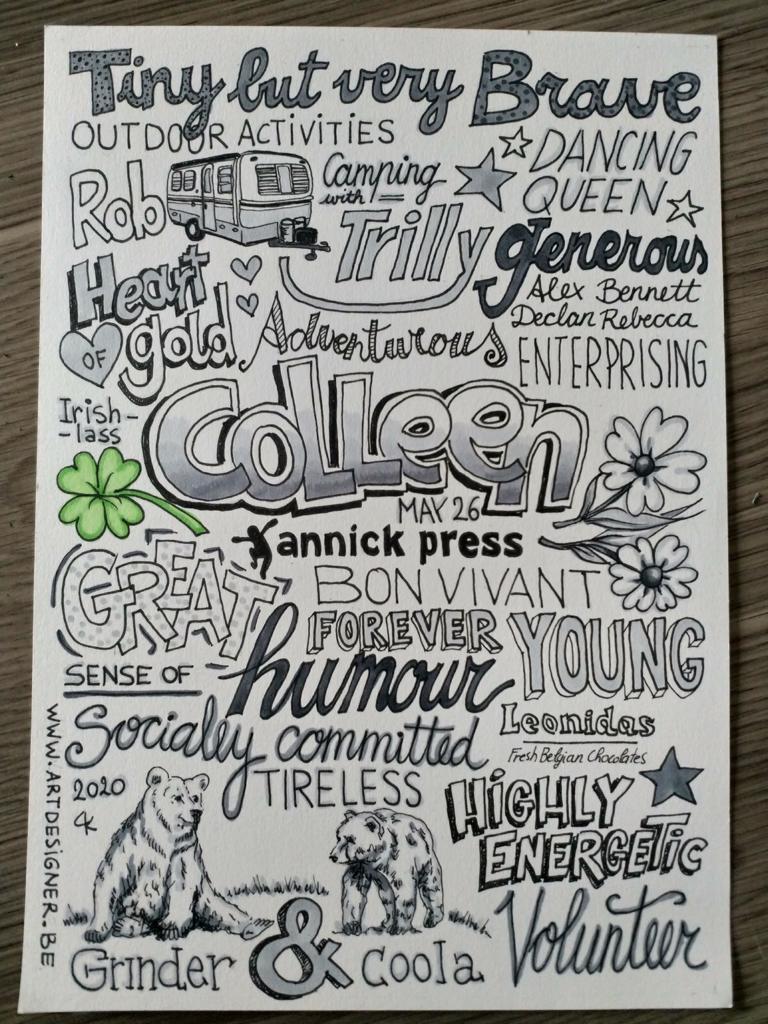 Tiny but very Brave
OUTDOOR ACTIVITIES
DANCING
QUEEN
Rob
Camping
with
Trilly
generous
Heart
OF gold
Alex Bennett
Declan Rebecca
Adventurous
ENTERPRISING
Irish-
-lass
Colleen
MAY 26
Yannick press
GREAT
BON VIVANT
FOREVER YOUNG
SENSE OF humour
Leonidas
Fresh Belgian Chocolates
Socially committed
TIRELESS
2020
HIGHLY
ENERGETIC
Grinder & Coola
Volunteer
WWW.ARTDESIGNER.BE